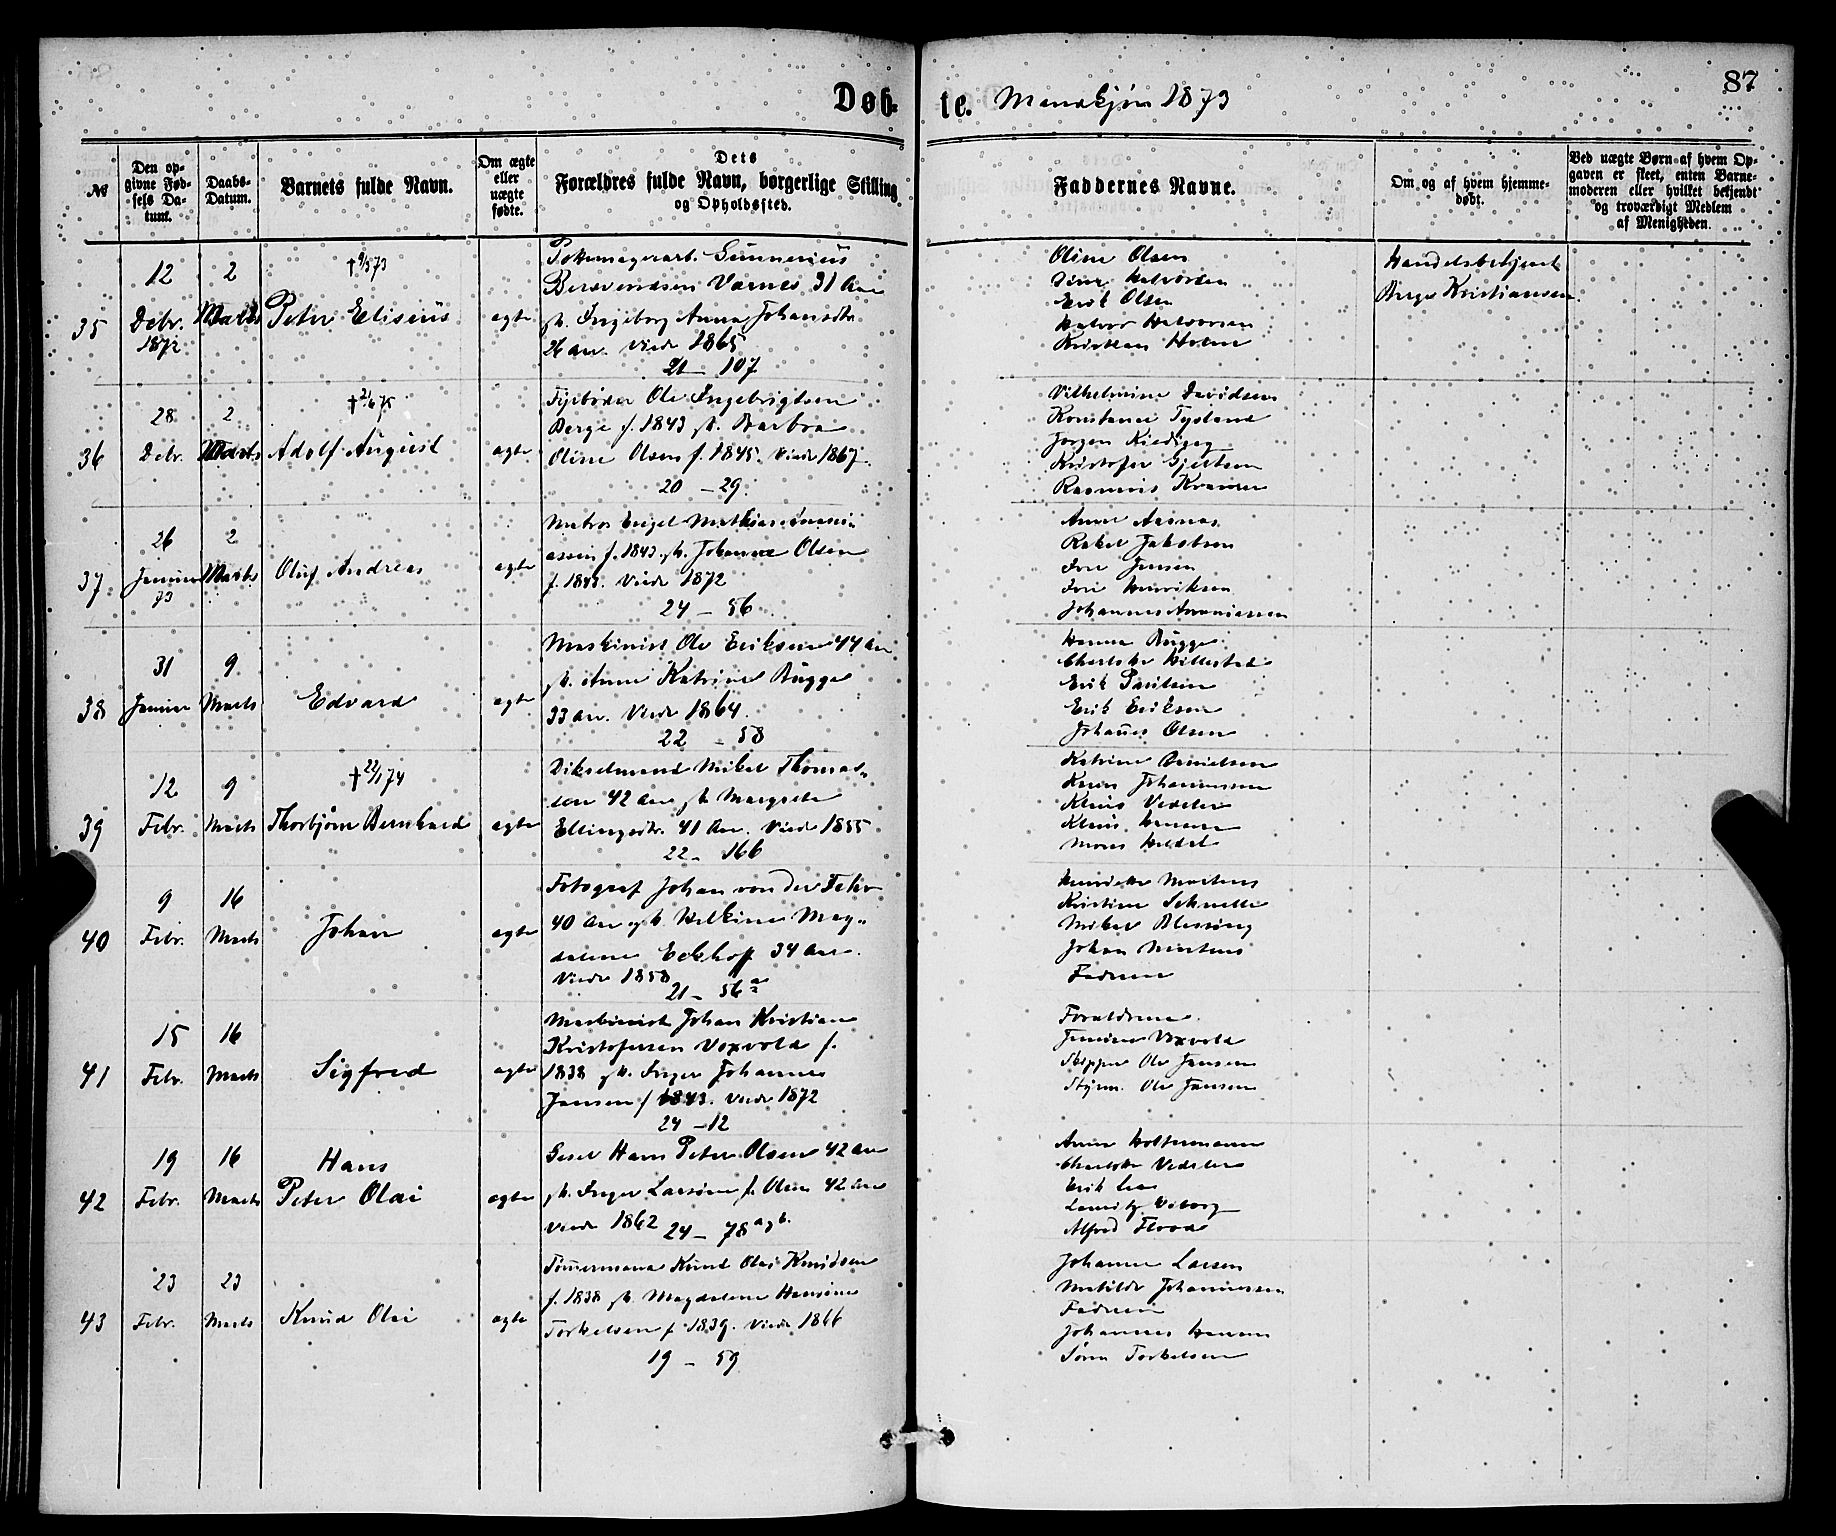 87
Døb-
te. Mandkjøn 1873
№
Den opgivne Fødsels Datum.
Daabs-Datum.
Barnets fulde Navn.
Om ægte eller uægte fødte.
Dets Forældres fulde Navn, borgerlige Stilling og Opholdssted.
Faddernes Navne.
Om og af hvem hjemmedøbt.
Ved uægte Børn af hvem Opgaven er skeet, enten Barnemoderen eller hvilket bekjendt og troværdigt Medlem af Menigheden.
35
12 Debr. 1872
2 Marts
† 9/3 73
Peter Elisius
ægte
Gunnerius
Værnes 31 Aar
Ingeborg Anna Johansdtr.
26 Aar. Viede 1865
21 - 107
Oline Olsen
Halvorsen
Erik Olsen
Halvor Halvorsen
Kristian Holm
Handelsbetjent
Birger Kristiansen
36
28 Debr.
2 Marts
Adolf August
ægte
Ole Ingebrigtsen
Berge f. 1843 Barbra
Oline Olsen f. 1845. Viede 1867.
20 - 29.
Vilhelmine Davidsen
Konstance Tysland
Jørgen
Kristofer Gjertsen
Rasmus
37
26 Januar 73
2 Marts
Oluf Andreas
ægte
Matros Engel Mathias
f. 1843. Johanne Olsen
Viede 1872
24 - 56
Anne Aasnæs
Rakel Jakobsen
Jensen
Henriksen
Johannes Ananiassen
38
31 Januar
9 Marts
Edvard
ægte
Maskinist Ole Eriksen 44 Aar
Anne Katrine Bugge
33 Aar. Viede 1864.
22 - 58
Hanna Bugge
Charlotte Hillestad
Erik Paulsen
Erik Eriksen
Johannes Olsen
39
12 Febr.
9 Marts
† 22/1 74
Thorbjørn Bernhard
ægte
Mikel Thomas-
sen 42 Aar Margrete
Ellingsdtr. 41 Aar. Viede 1855
22 - 166
Katrine Danielsen
Karen Johannessen
Klaus Vedeler
Klaus Hansen
40
9 Febr.
16 Marts
Johan
ægte
Fotograf Johan von der Fehr
40 Aar Magdalene Eckhoff 34 Aar.
Viede 1858
21 - 56 a
Henriette Martens
Kristine Schnelle
Mikel Blessing
Johan Martens
Faderen
41
15 Febr.
16 Marts
Sigfred
ægte
Maskinist Johan Kristian
Kristofersen Voxvold f.
1838 Inger Johanne
Jansen f 1843. Viede 1872
24 - 12
Forældrene.
Voxvold
Skipper Ole Jansen
Styrm. Ole Jansen
42
19 Febr.
16 Marts
Hans
Peter Olai
ægte
Hans Peter Olsen 42 Aar
Inger f. Olsen 42 Aar
Viede 1862 24 - 78
Anne Holtermann
Charlotte Vedeler
Erik
Alfred Flood
43
23 Febr.
23 Marts
Knud Olai
ægte
Tømmermand Knud Olai Knudsen
f. 1838 Magdalene
Torkelsen f 1839. Viede 1866
19 - 59
Johanne Larsen
Matilde Johannessen
Faderen
Johannes Hansen
Søren Torkelsen